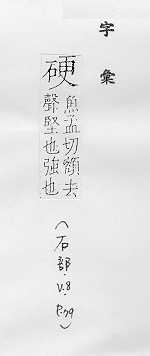 字彙
硬
魚孟切額去
聲堅也強也
(石部.V.8
P.79)